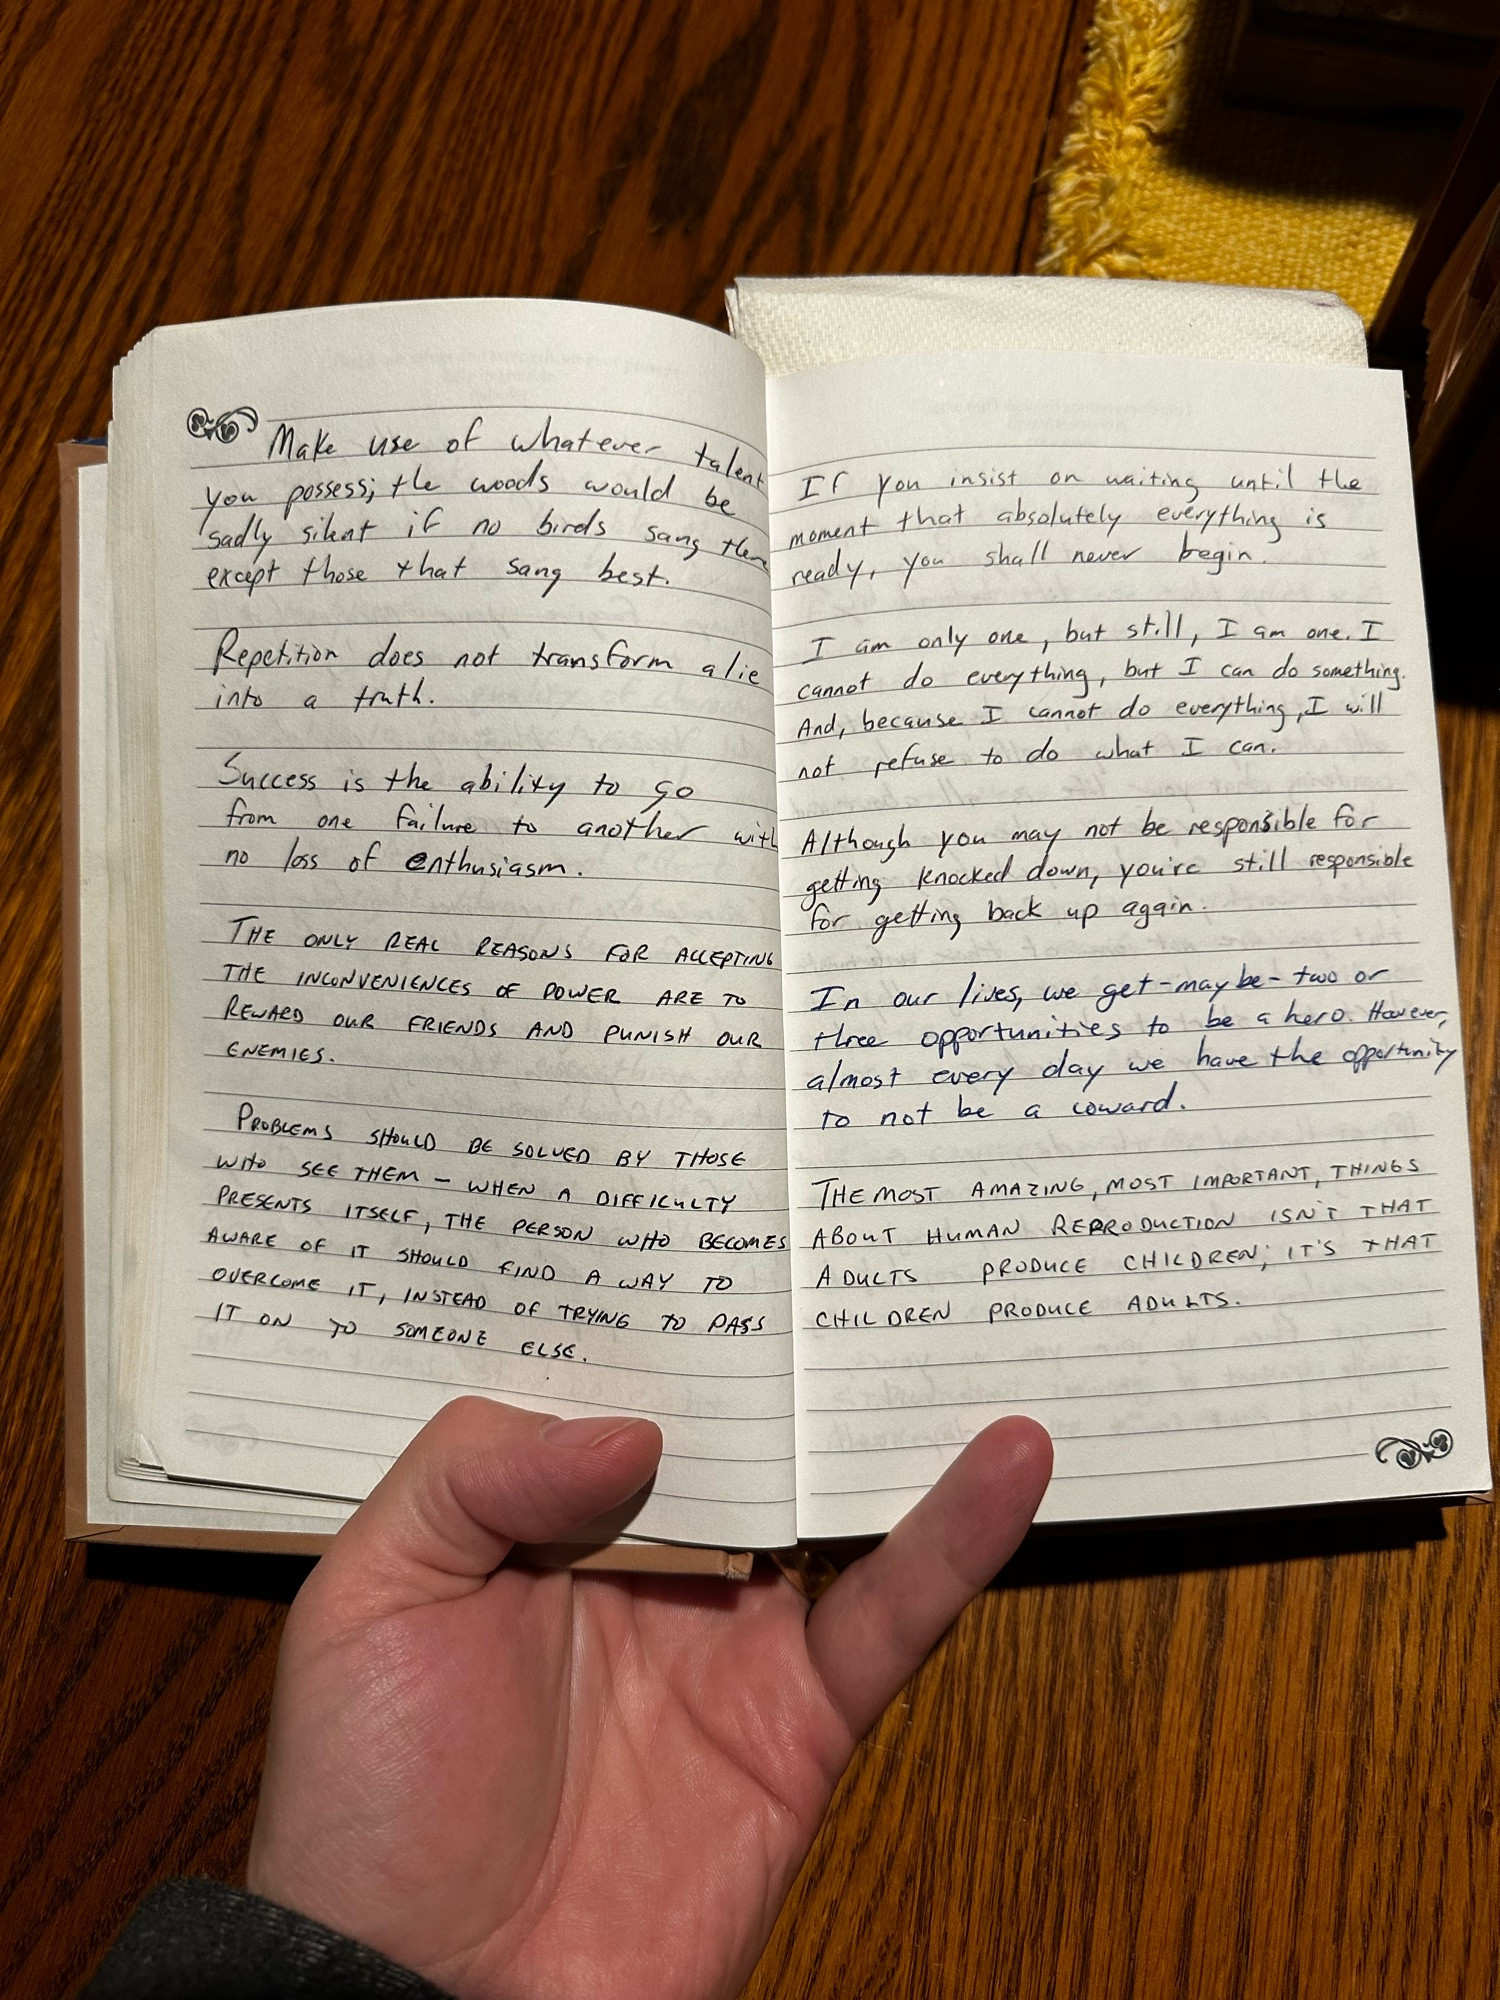 Make use of whatever talent
you possess; the woods would be
sadly silent if no birds sang there
except those that sang best.
Repetition does not transform a lie
into a truth.
Success is the ability to go
from one failure to another with
no loss of enthusiasm.
THE ONLY REAL REASONS FOR ACCEPTING
THE INCONVENIENCES OF POWER ARE TO
REWARD OUR FRIENDS AND PUNISH OUR
ENEMIES.
PROBLEMS SHOULD BE SOLVED BY THOSE
WHO SEE THEM – WHEN A DIFFICULTY
PRESENTS ITSELF, THE PERSON WHO BECOMES
AWARE OF IT SHOULD FIND A WAY TO
OVERCOME IT, INSTEAD OF TRYING TO PASS
IT ON TO SOMEONE ELSE.
If you insist on waiting until the
moment that absolutely everything is
ready, you shall never begin.
I am only one, but still, I am one. I
cannot do everything, but I can do something.
And, because I cannot do everything, I will
not refuse to do what I can.
Although you may not be responsible for
getting knocked down, you're still responsible
for getting back up again.
In our lives, we get – maybe – two or
three opportunities to be a hero. However,
almost every day we have the opportunity
to not be a coward.
THE MOST AMAZING, MOST IMPORTANT, THINGS
ABOUT HUMAN REPRODUCTION ISN'T THAT
ADULTS PRODUCE CHILDREN; IT'S THAT
CHILDREN PRODUCE ADULTS.